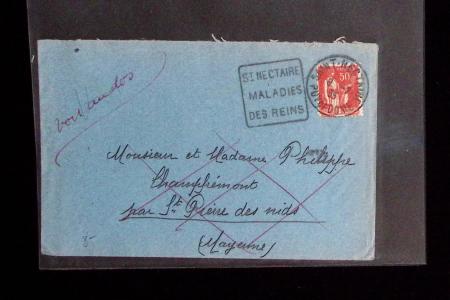 voir au dos
ST NECTAIRE
MALADIES
DES REINS
SAINT-NECTAIRE
PUY-DE-DOME
50
Monsieur et Madame Philippe
Champfrémont
par St Pierre des nids
(Mayenne)
8-